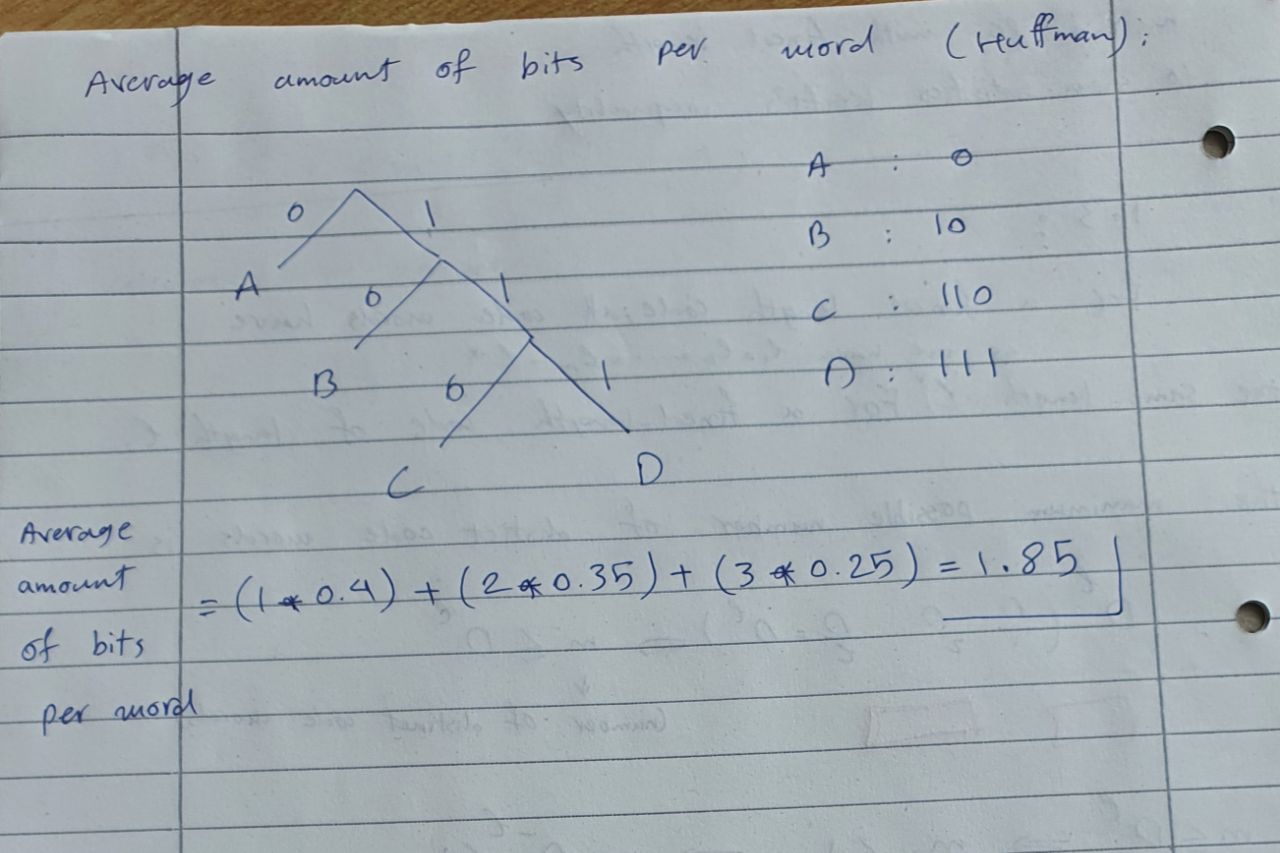 Average amount of bits per word (Huffman):
0 1
A
0 1
B
0 1
C D
A : 0
B : 10
C : 110
D : 111
Average
amount
of bits
per word
= (1 * 0.4) + (2 * 0.35) + (3 * 0.25) = 1.85